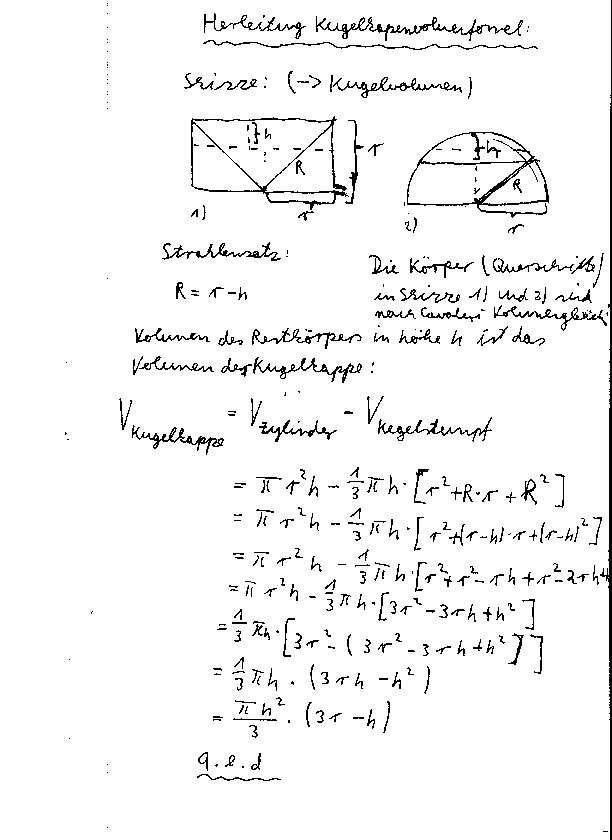 Herleitung Kugelkappenvolumenformel:
Skizze: (-> Kugelvolumen)
h
r
R
1)
r
h
R
2)
r
Strahlensatz:
R = r-h
Die Körper (Querschnitte)
in Skizze 1) und 2) sind
nach Cavalieri Volumengleich:
Volumen des Restkörpers in höhe h ist das
Volumen der Kugelkappe:
V Kugelkappe = V Zylinder - V Kegelstumpf
= π r²h - 1/3 πh · [r²+R·r+R²]
= π r²h - 1/3 πh · [r²+(r-h)·r+(r-h)²]
= π r²h - 1/3 πh · [r²+r²-rh+r²-2rh+
= π r²h - 1/3 πh · [3r²-3rh+h²]
= 1/3 πh · [3r²-(3r²-3rh+h²)]
= 1/3 πh · (3rh-h²)
= πh²/3 · (3r-h)
q.e.d